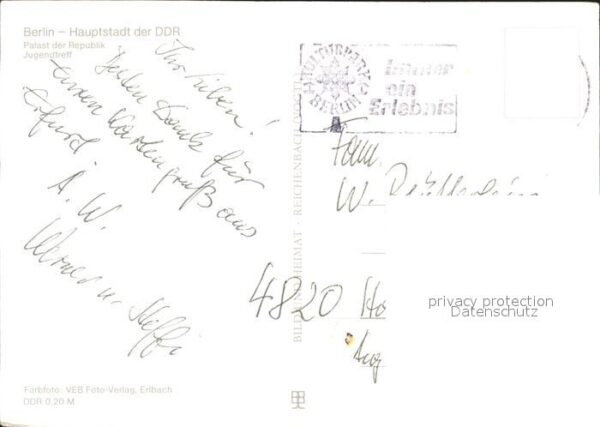 Berlin – Hauptstadt der DDR
Palast der Republik
Jugendtreff
Ihr Lieben!
Besten Dank für
Euren Kartengruß aus
Erfurt
A. W.
Werner u. Steffi
KULTURPARK
BERLIN
Immer
ein
Erlebnis
Fam.
W.
4820
privacy protection
Datenschutz
BILD UND HEIMAT · REICHENBACH
Farbfoto: VEB Foto-Verlag, Erlbach
DDR 0,20 M